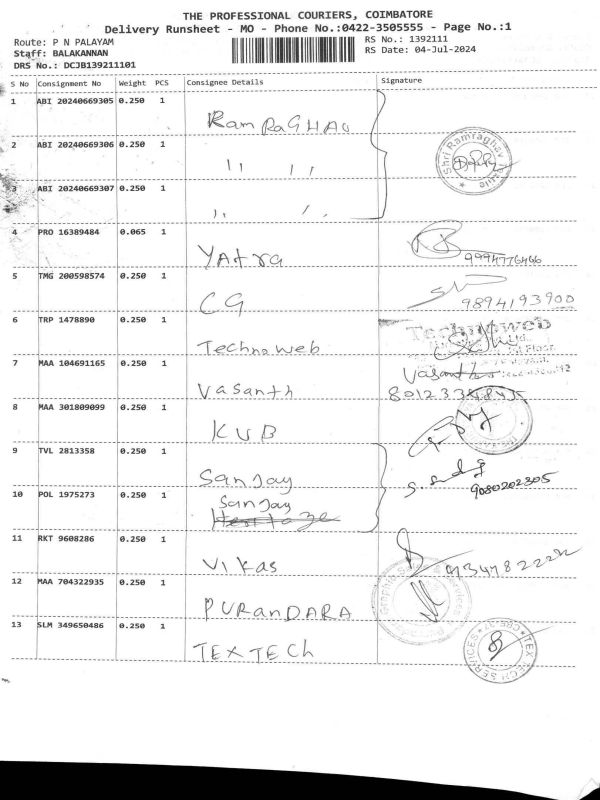 THE PROFESSIONAL COURIERS, COIMBATORE
Delivery Runsheet - MO - Phone No.:0422-3505555 - Page No.:1
Route: P N PALAYAM
RS No.: 1392111
Staff: BALAKANNAN
RS Date: 04-Jul-2024
DRS No.: DCJB139211101
S No Consignment No Weight PCS Consignee Details Signature
1 ABI 20240669305 0.250 1
Ram RaGHAV
2 ABI 20240669306 0.250 1
,, ,,
Shri Ramraghav
3 ABI 20240669307 0.250 1
,, ,,
4 PRO 16389484 0.065 1
YAtra
9994776466
5 TMG 200598574 0.250 1
CG
9894193900
6 TRP 1478890 0.250 1
Technoweb
Technoweb
7 MAA 104691165 0.250 1
Vasanth
Vasanth
8 MAA 301809099 0.250 1
KVB
9 TVL 2813358 0.250 1
Sanjay
10 POL 1975273 0.250 1
Sanjay
9080202305
11 RKT 9608286 0.250 1
Vikas
12 MAA 704322935 0.250 1
PURANDARA
13 SLM 349650486 0.250 1
TEXTECh
TEX TECH SERVICES